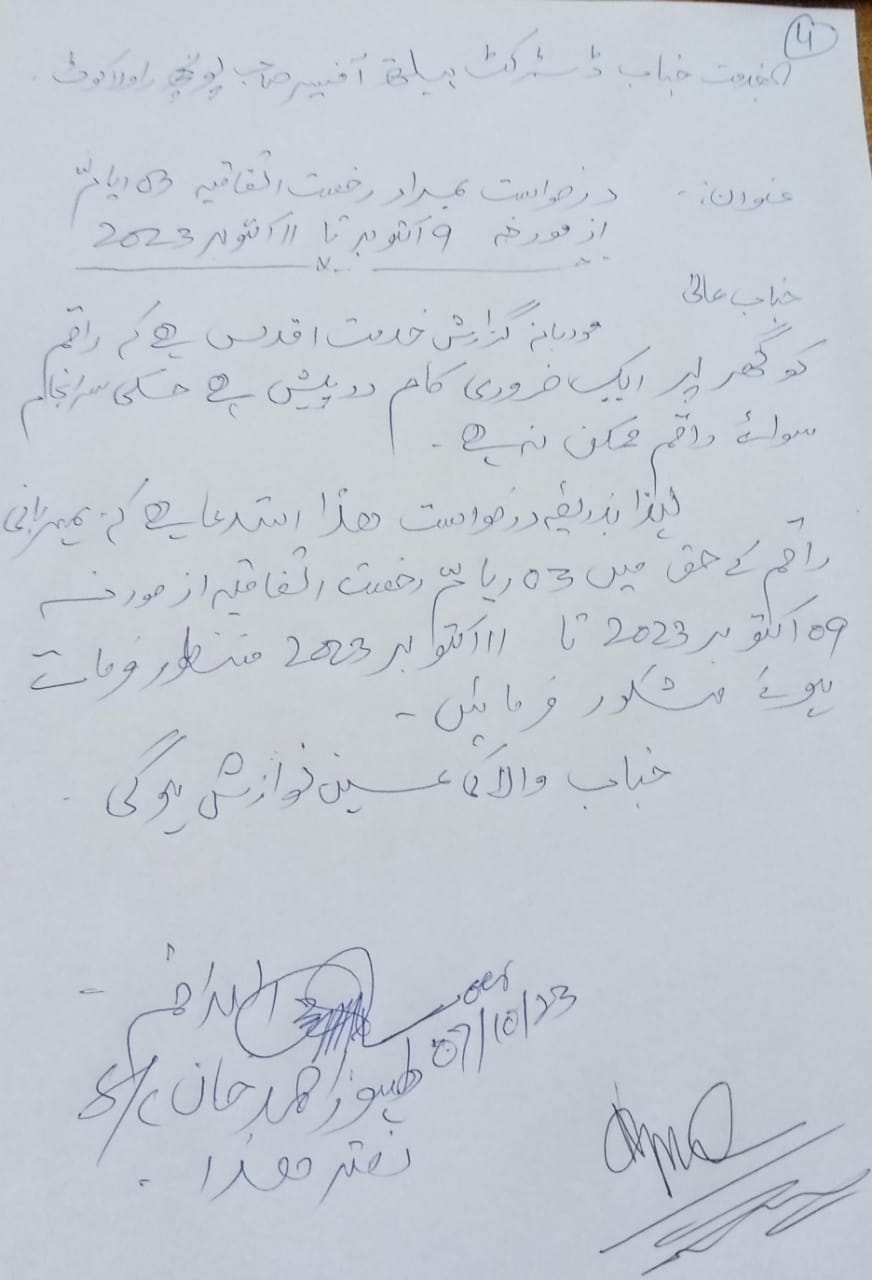 4
بخدمت جناب ڈسٹرکٹ ہیلتھ آفیسر صاحب پونچھ راولاکوٹ۔
عنوان:- درخواست بمراد رخصت اتفاقیہ 03 ایام
از مورخہ 9 اکتوبر تا 11 اکتوبر 2023
جناب عالی
مودبانہ گزارش خدمت اقدس ہے کہ راقم
کو گھر پر ایک ضروری کام درپیش ہے جسکی سرانجام
سوائے راقم ممکن نہ ہے۔
لہذا بذریعہ درخواست ھذا استدعا ہے کہ بمہربانی
راقم کے حق میں 03 ایام رخصت اتفاقیہ از مورخہ
09 اکتوبر 2023 تا 11 اکتوبر 2023 منظور فرماتے
ہوئے مشکور فرمائیں۔
جناب والا کی عین نوازش ہوگی۔
الراقم
07/10/23
احمد خان S/C
دفتر ھذا۔